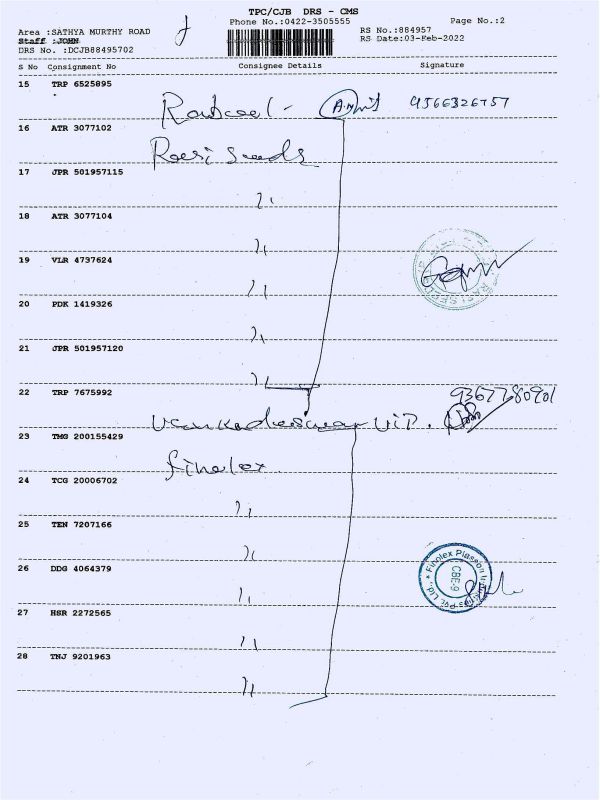 TPC/CJB DRS - CMS
Phone No.:0422-3505555
Page No.:2
Area :SATHYA MURTHY ROAD
RS No.:884957
Staff :JOHN
RS Date:03-Feb-2022
DRS No. :DCJB88495702
S No Consignment No Consignee Details Signature
15 TRP 6525895
9566326757
16 ATR 3077102
Rasi seeds
17 JPR 501957115
"
18 ATR 3077104
"
19 VLR 4737624
"
20 PDK 1419326
"
21 JPR 501957120
"
22 TRP 7675992
9367780901
23 TMG 200155429
finolex
24 TCG 20006702
"
25 TEN 7207166
"
26 DDG 4064379
"
Finolex Plasson Industries Pvt. Ltd.,
CBE-9
27 HSR 2272565
"
28 TNJ 9201963
"